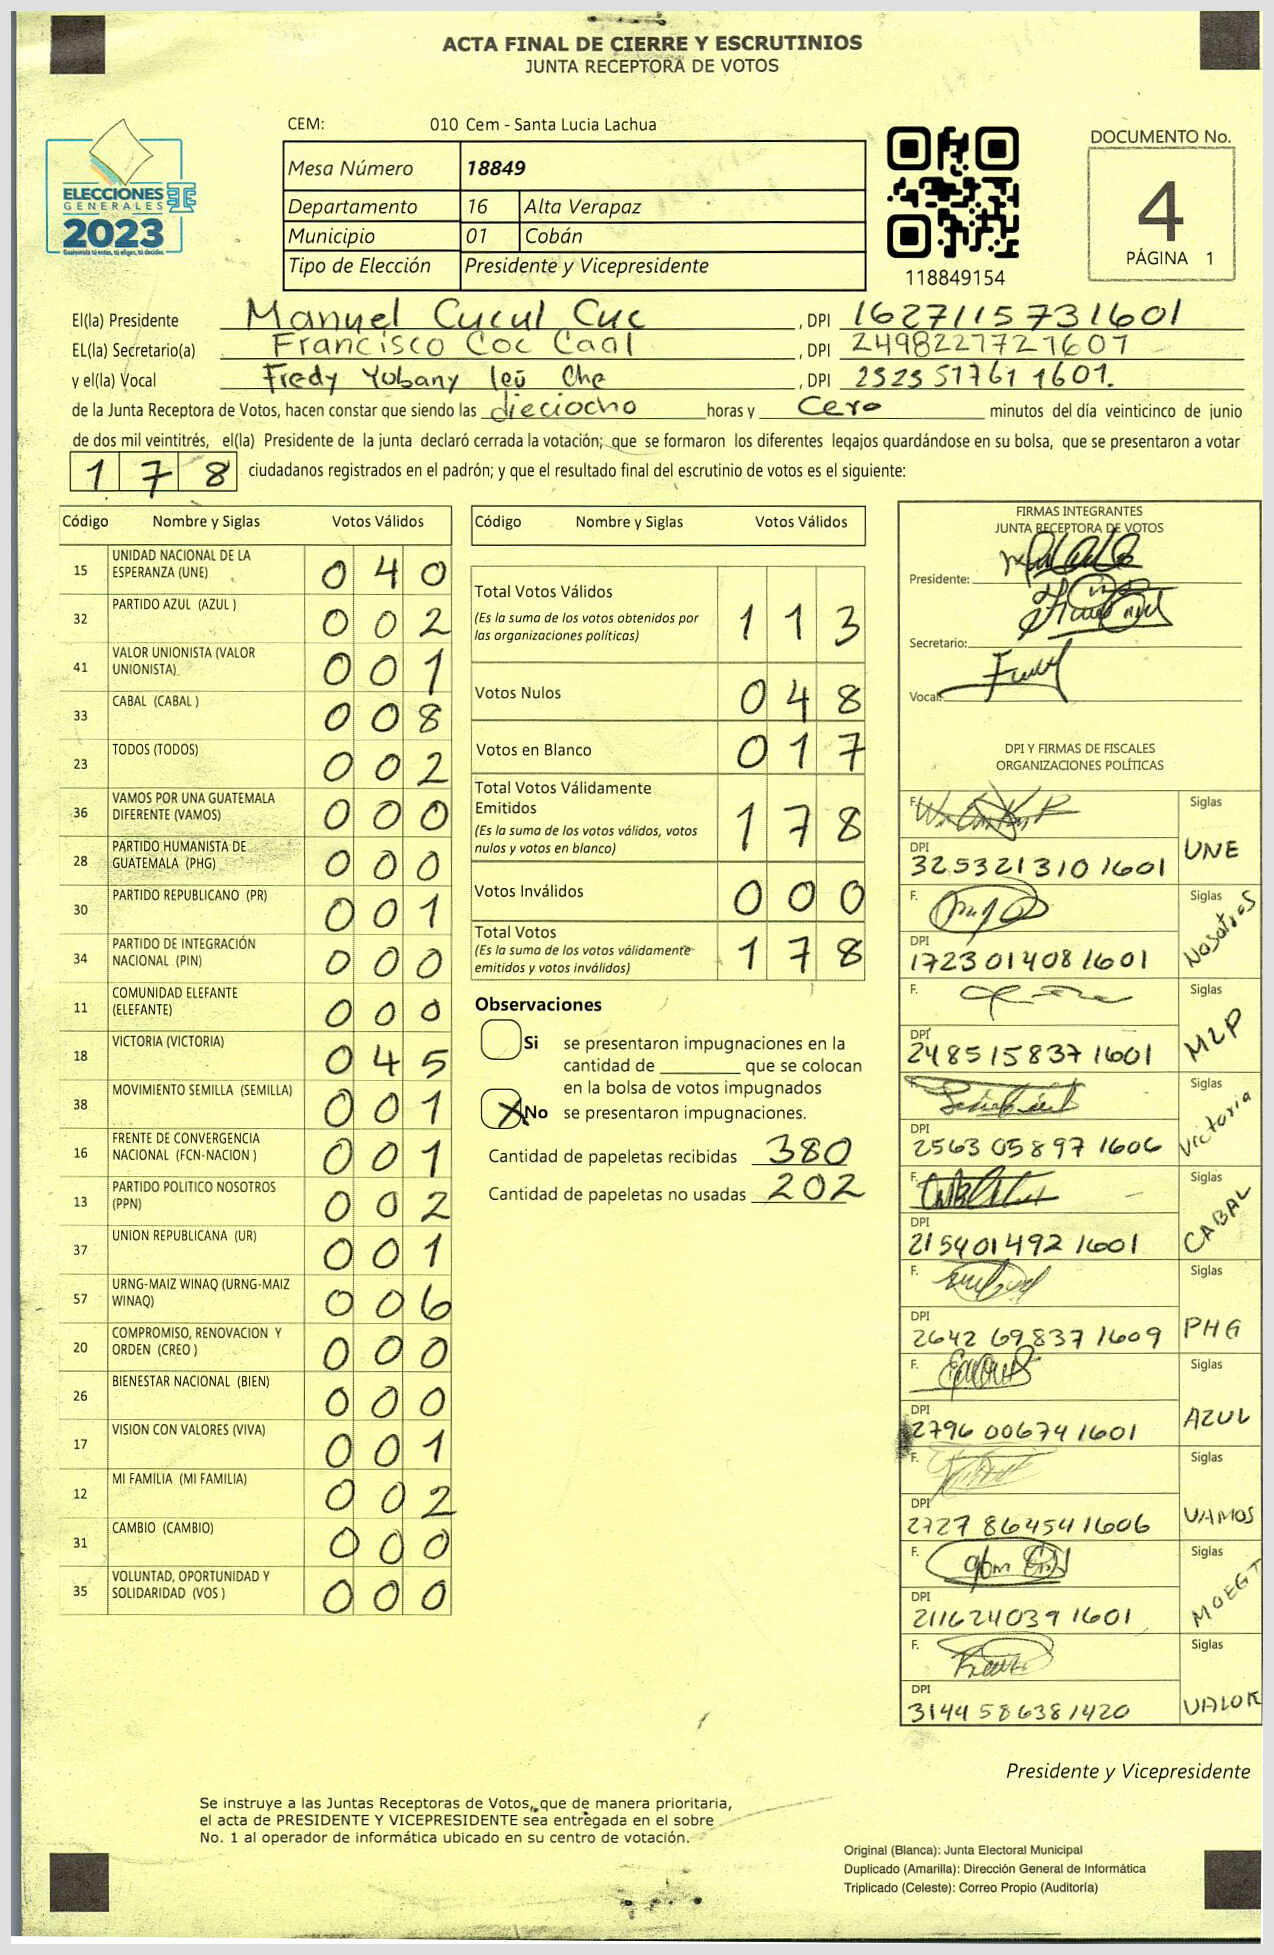 ACTA FINAL DE CIERRE Y ESCRUTINIOS
JUNTA RECEPTORA DE VOTOS
ELECCIONES
GENERALES
2023
Guatemala tú votas, tú eliges, tú decides
CEM: 010 Cem - Santa Lucia Lachua
Mesa Número 18849
Departamento 16 Alta Verapaz
Municipio 01 Cobán
Tipo de Elección Presidente y Vicepresidente
118849154
DOCUMENTO No.
4
PÁGINA 1
El(la) Presidente Manuel Cucul Cuc , DPI 1627115731601
EL(la) Secretario(a) Francisco Coc Caal , DPI 2498227721601
y el(la) Vocal Fredy Yobany Che , DPI 2323517611601.
de la Junta Receptora de Votos, hacen constar que siendo las dieciocho horas y Cero minutos del día veinticinco de junio
de dos mil veintitrés, el(la) Presidente de la junta declaró cerrada la votación; que se formaron los diferentes legajos guardándose en su bolsa, que se presentaron a votar
178 ciudadanos registrados en el padrón; y que el resultado final del escrutinio de votos es el siguiente:
Código Nombre y Siglas Votos Válidos
15 UNIDAD NACIONAL DE LA ESPERANZA (UNE) 040
32 PARTIDO AZUL (AZUL ) 002
41 VALOR UNIONISTA (VALOR UNIONISTA) 001
33 CABAL (CABAL ) 008
23 TODOS (TODOS) 002
36 VAMOS POR UNA GUATEMALA DIFERENTE (VAMOS) 000
28 PARTIDO HUMANISTA DE GUATEMALA (PHG) 000
30 PARTIDO REPUBLICANO (PR) 001
34 PARTIDO DE INTEGRACIÓN NACIONAL (PIN) 000
11 COMUNIDAD ELEFANTE (ELEFANTE) 000
18 VICTORIA (VICTORIA) 045
38 MOVIMIENTO SEMILLA (SEMILLA) 001
16 FRENTE DE CONVERGENCIA NACIONAL (FCN-NACION ) 001
13 PARTIDO POLITICO NOSOTROS (PPN) 002
37 UNION REPUBLICANA (UR) 001
57 URNG-MAIZ WINAQ (URNG-MAIZ WINAQ) 006
20 COMPROMISO, RENOVACION Y ORDEN (CREO ) 000
26 BIENESTAR NACIONAL (BIEN) 000
17 VISION CON VALORES (VIVA) 001
12 MI FAMILIA (MI FAMILIA) 002
31 CAMBIO (CAMBIO) 000
35 VOLUNTAD, OPORTUNIDAD Y SOLIDARIDAD (VOS ) 000
Código Nombre y Siglas Votos Válidos
Total Votos Válidos 113
(Es la suma de los votos obtenidos por
las organizaciones políticas)
Votos Nulos 048
Votos en Blanco 017
Total Votos Válidamente
Emitidos 178
(Es la suma de los votos válidos, votos
nulos y votos en blanco)
Votos Inválidos 000
Total Votos 178
(Es la suma de los votos válidamente
emitidos y votos inválidos)
Observaciones
Si se presentaron impugnaciones en la
cantidad de ________ que se colocan
en la bolsa de votos impugnados
X No se presentaron impugnaciones.
Cantidad de papeletas recibidas 380
Cantidad de papeletas no usadas 202
FIRMAS INTEGRANTES
JUNTA RECEPTORA DE VOTOS
Presidente:
Secretario:
Vocal:
DPI Y FIRMAS DE FISCALES
ORGANIZACIONES POLÍTICAS
F. Siglas
DPI 3253213101601 UNE
F. Siglas
DPI 1723014081601 Nosotros
F. Siglas
DPI 2485158371601 MLP
F. Siglas
DPI 2563058971606 Victoria
F. Siglas
DPI 2154014921601 CABAL
F. Siglas
DPI 2642698371609 PHG
F. Siglas
DPI 2796006741601 AZUL
F. Siglas
DPI 2727864541606 VAMOS
F. Siglas
DPI 2116240391601 MOEGT
F. Siglas
DPI 3144586381420 VALOR
Presidente y Vicepresidente
Se instruye a las Juntas Receptoras de Votos, que de manera prioritaria,
el acta de PRESIDENTE Y VICEPRESIDENTE sea entregada en el sobre
No. 1 al operador de informática ubicado en su centro de votación.
Original (Blanca): Junta Electoral Municipal
Duplicado (Amarilla): Dirección General de Informática
Triplicado (Celeste): Correo Propio (Auditoría)